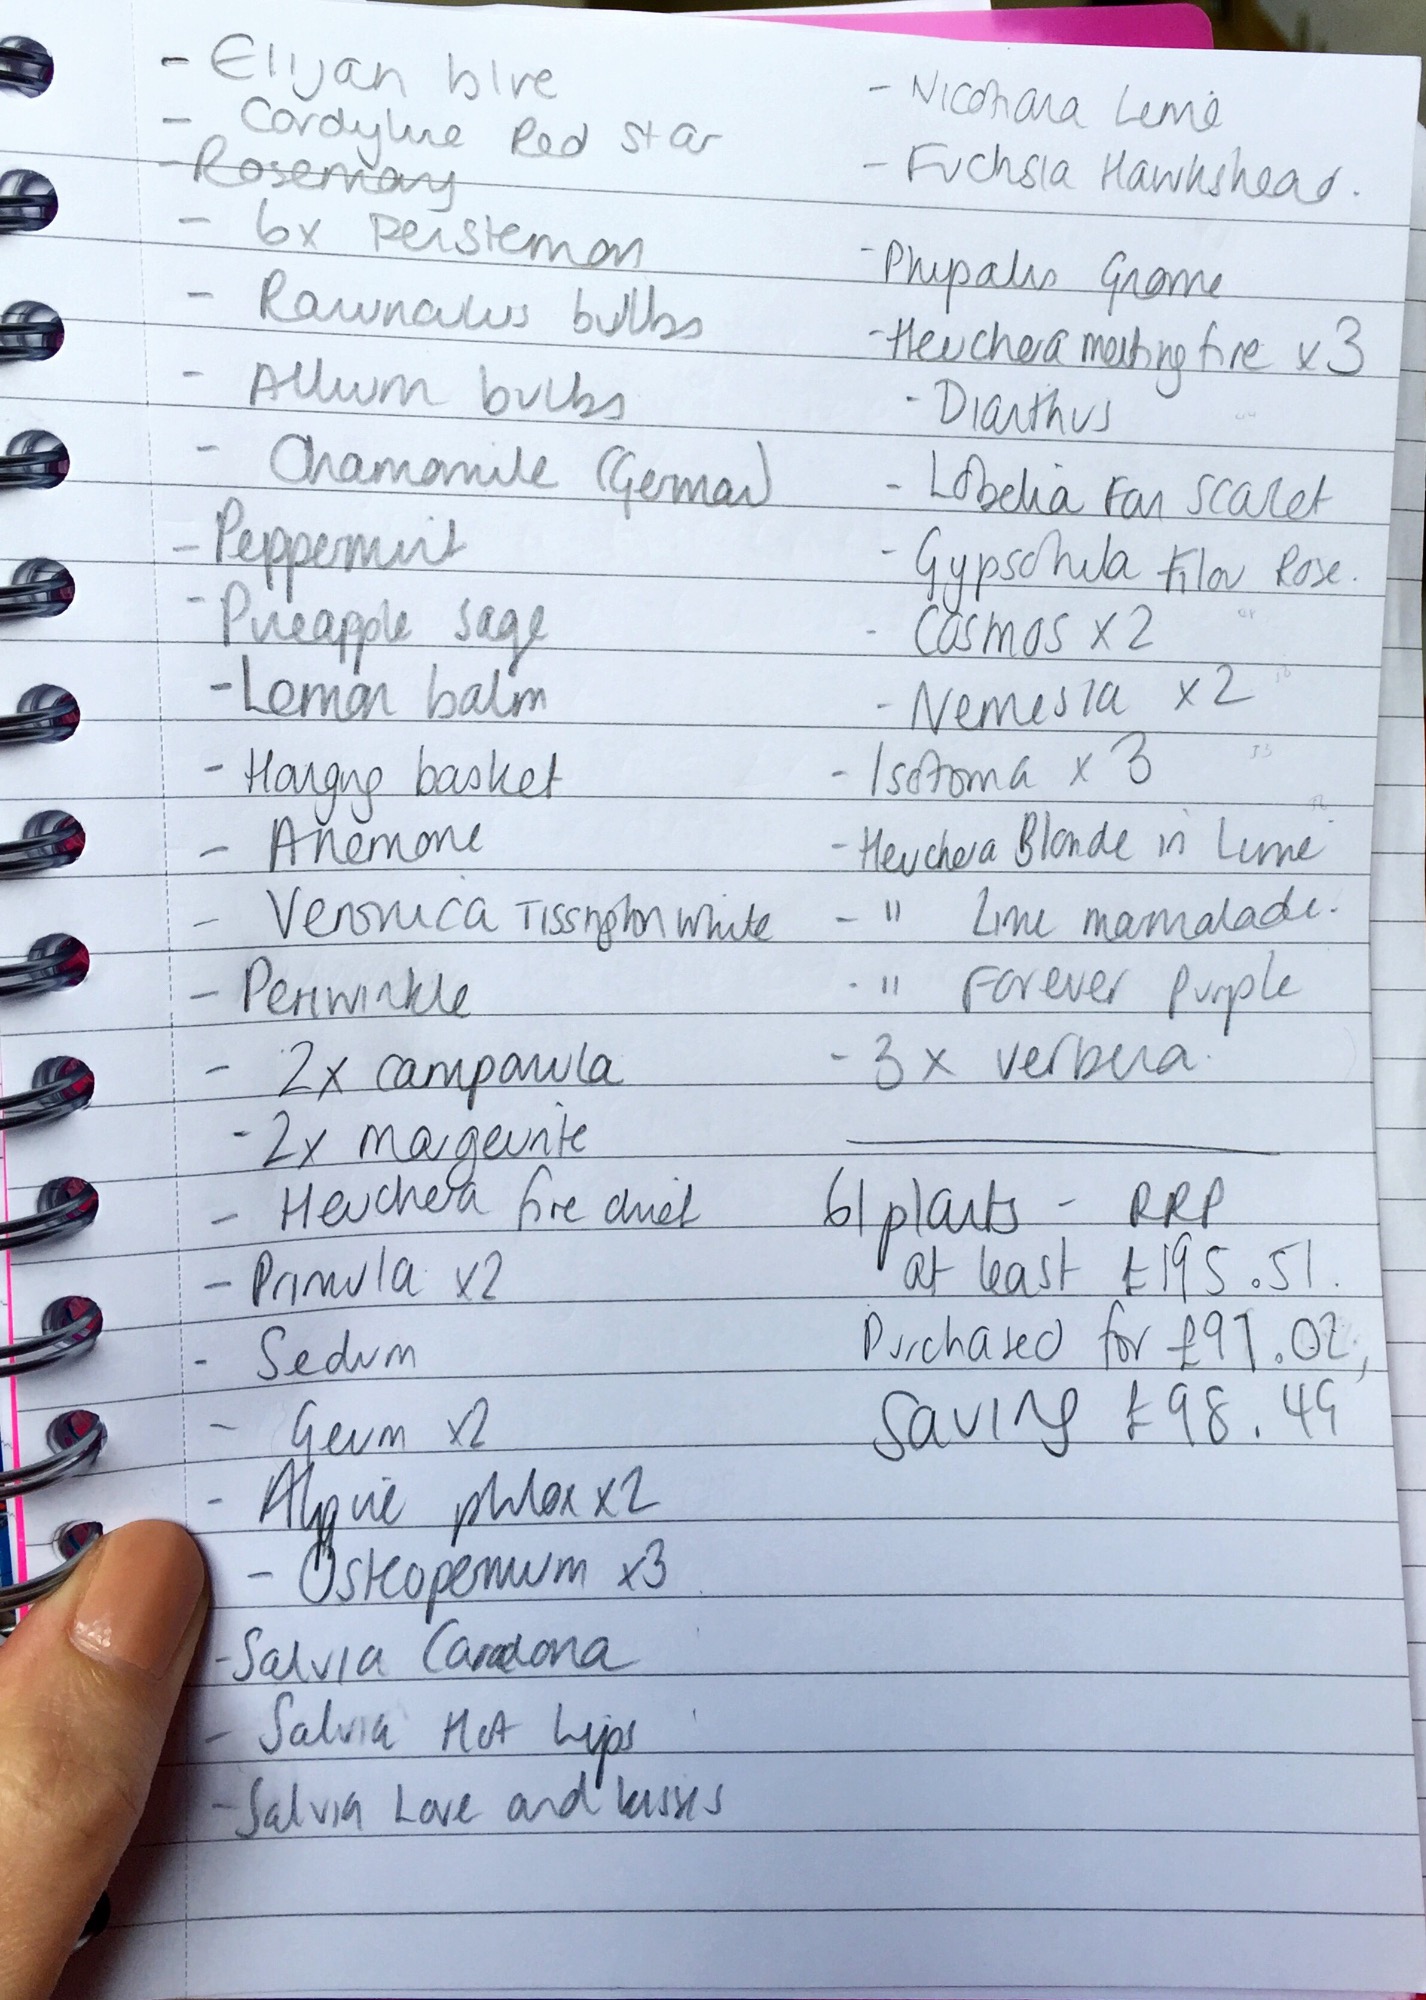 - Elijah blue
- Cordyline Red Star
- Rosemary
- 6x Penstemon
- Ranunculus bulbs
- Allium bulbs
- Chamomile (German)
- Peppermint
- Pineapple sage
- Lemon balm
- Hanging basket
- Anemone
- Veronica Tissington White
- Periwinkle
- 2x campanula
- 2x margeurite
- Heuchera fire chief
- Primula x2
- Sedum
- Geum x2
- Alpine phlox x2
- Osteopermum x3
- Salvia Caradona
- Salvia Hot Lips
- Salvia Love and kisses
- Nicotiana Lime
- Fuchsia Hawkshead.
- Physalis Gnome
- Heuchera melting fire x3
- Dianthus
- Lobelia Fan Scarlet
- Gypsophila Filou Rose.
- Cosmos x2
- Nemesia x2
- Isotoma x 3
- Heuchera Blonde in Lime
- " Lime marmalade.
- " Forever Purple
- 3 x verbena.
61 plants - RRP
at least £195.51.
Purchased for £97.02,
Saving £98.49